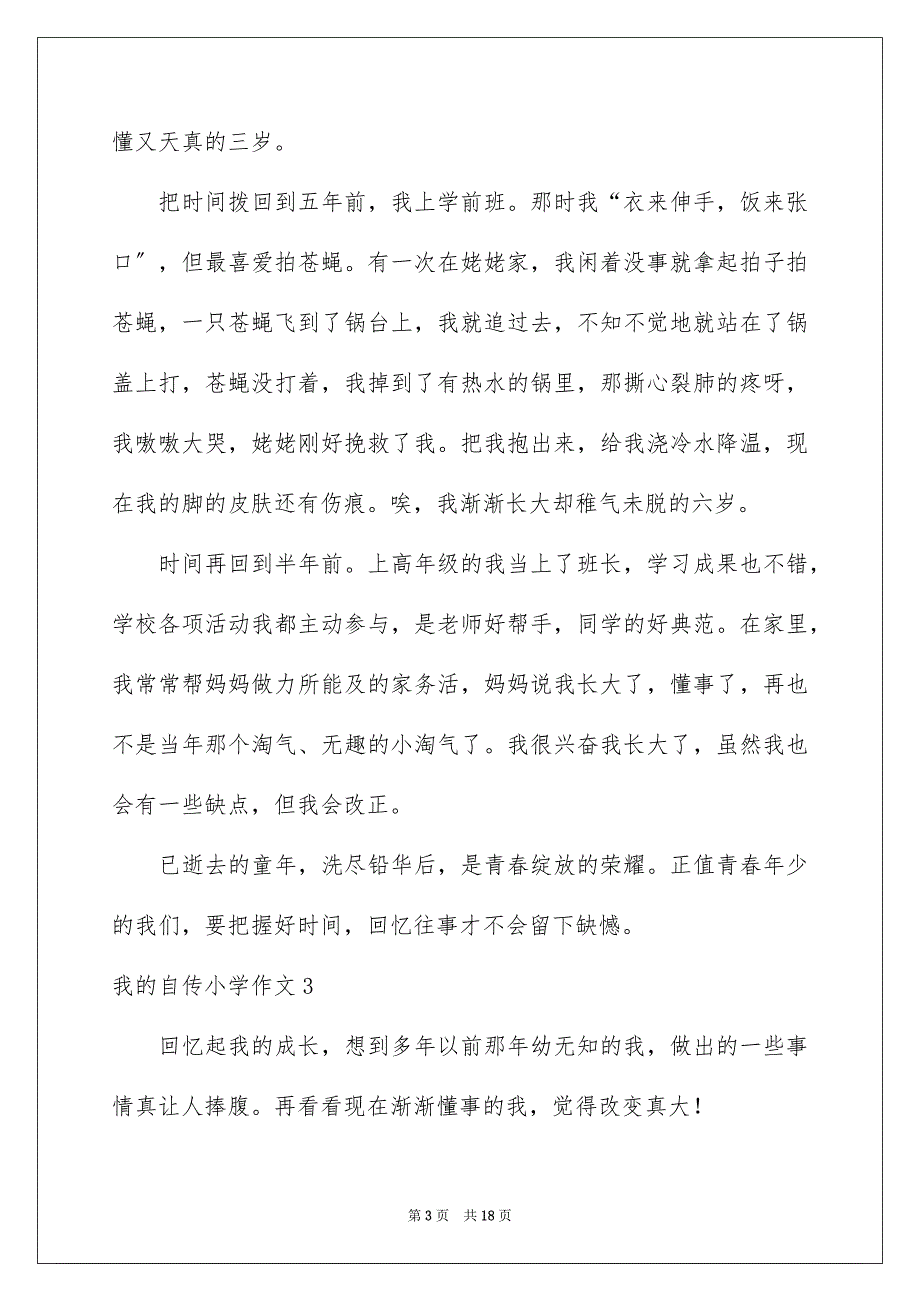 懂又天真的三岁。
把时间拨回到五年前，我上学前班。那时我“衣来伸手，饭来张
口〞，但最喜爱拍苍蝇。有一次在姥姥家，我闲着没事就拿起拍子拍
苍蝇，一只苍蝇飞到了锅台上，我就追过去，不知不觉地就站在了锅
盖上打，苍蝇没打着，我掉到了有热水的锅里，那撕心裂肺的疼呀，
我嗷嗷大哭，姥姥刚好挽救了我。把我抱出来，给我浇冷水降温，现
在我的脚的皮肤还有伤痕。唉，我渐渐长大却稚气未脱的六岁。
时间再回到半年前。上高年级的我当上了班长，学习成果也不错，
学校各项活动我都主动参与，是老师好帮手，同学的好典范。在家里，
我常常帮妈妈做力所能及的家务活，妈妈说我长大了，懂事了，再也
不是当年那个淘气、无趣的小淘气了。我很兴奋我长大了，虽然我也
会有一些缺点，但我会改正。
已逝去的童年，洗尽铅华后，是青春绽放的荣耀。正值青春年少
的我们，要把握好时间，回忆往事才不会留下缺憾。
我的自传小学作文 3
回忆起我的成长，想到多年以前那年幼无知的我，做出的一些事
情真让人捧腹。再看看现在渐渐懂事的我，觉得改变真大！
第 3 页 共 18 页